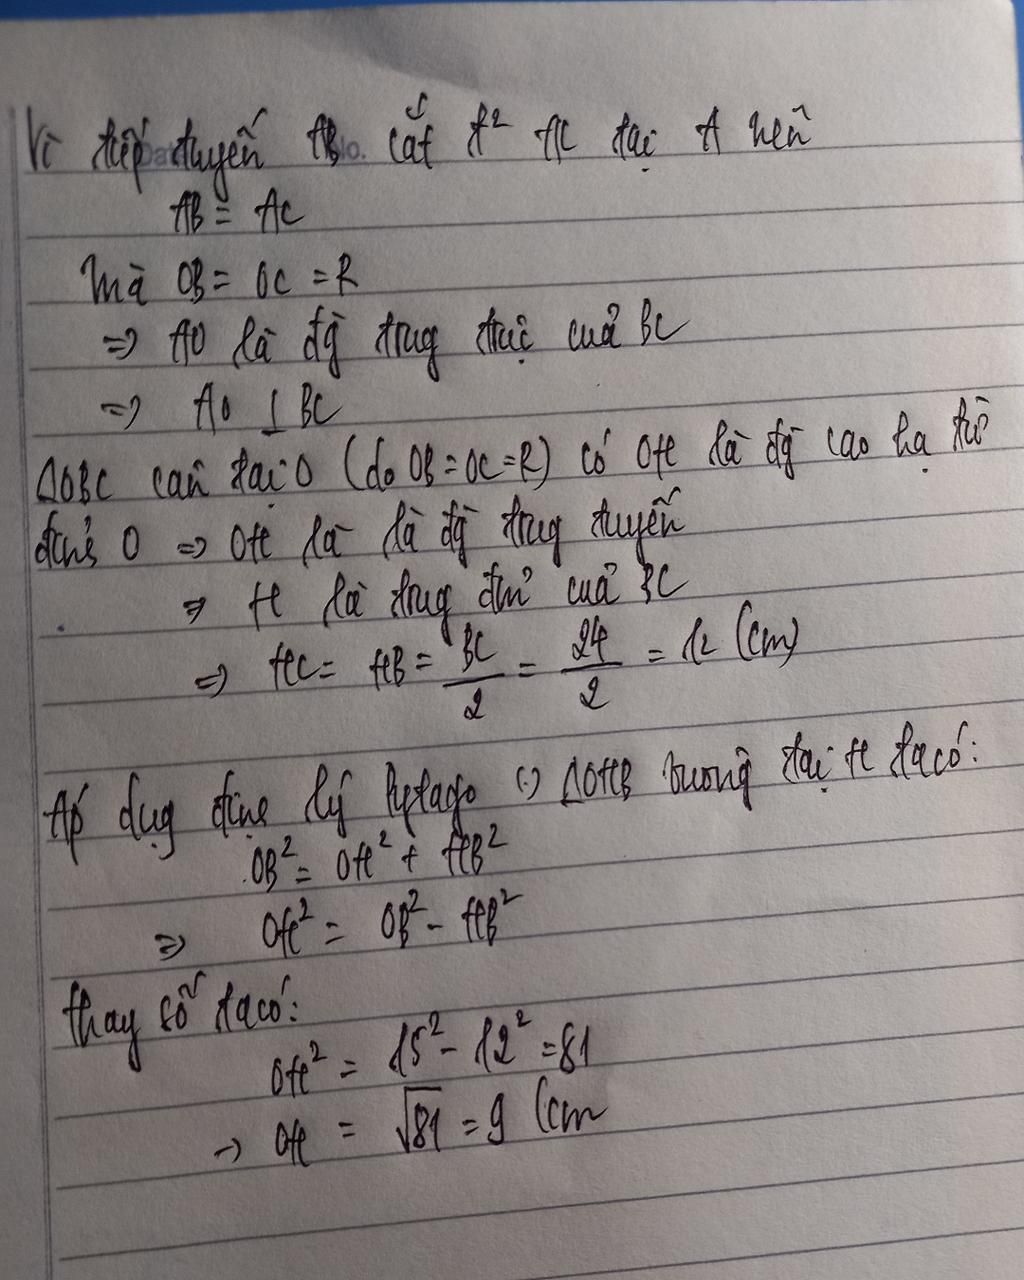 Vì tiếp tuyến AB cắt t² AC tại A nên
AB = AC
Mà OB = OC = R
=> AO là đg trug trực cuả BC
=> AO ⊥ BC
ΔOBC cân tại O (do OB = OC = R) có OH là đg cao hạ từ
đỉnh O => OH là là đg trug tuyến
=> H là trug đm̉ cuả BC
=> HC = HB = BC/2 = 24/2 = 12 (cm)
Áp dụg định lý Pytago (:) ΔOHB vuông tại H ta có:
OB² = OH² + HB²
=> OH² = OB² - HB²
thay số ta có:
OH² = 15² - 12² = 81
-> OH = √81 = 9 (cm